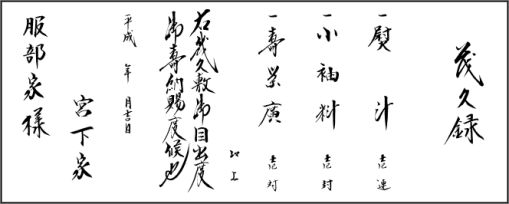 茂久録
一 熨 斗 壱 連
一 小袖料 壱 封
一 寿栄廣 壱 対
以上
右茂久敷御目出度
御寿納賜度候也
平成 年 月吉日
宮下家
服部家様